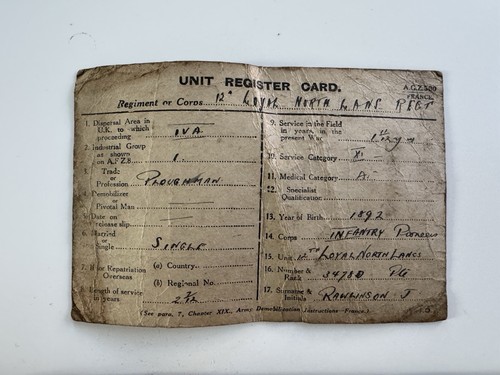 UNIT REGISTER CARD.
A.F.Z.500
FRANCE.
Regiment or Corps 12th LOYAL NORTH LANS REGT
1. Dispersal Area in
U.K. to which
proceeding IVA
2. Industrial Group
as shown
on A.F.Z.8 1
3. Trade
or
Profession PLOUGHMAN
4. Demobilizer
or
Pivotal Man
5. Date on
release slip
6. Married
or
Single SINGLE
7. If for Repatriation
Overseas
(a) Country
(b) Regional No.
8. Length of service
in years
9. Service in the Field
in years, in the
present War
10. Service Category
11. Medical Category
12. Specialist
Qualification
13. Year of Birth 1892
14. Corps INFANTRY
15. Unit 12TH LOYAL NORTH LANCS
16. Number &
Rank
17. Surname &
Initials RAWLINSON J
(See para. 7, Chapter XIX., Army Demobilization Instructions—France.)